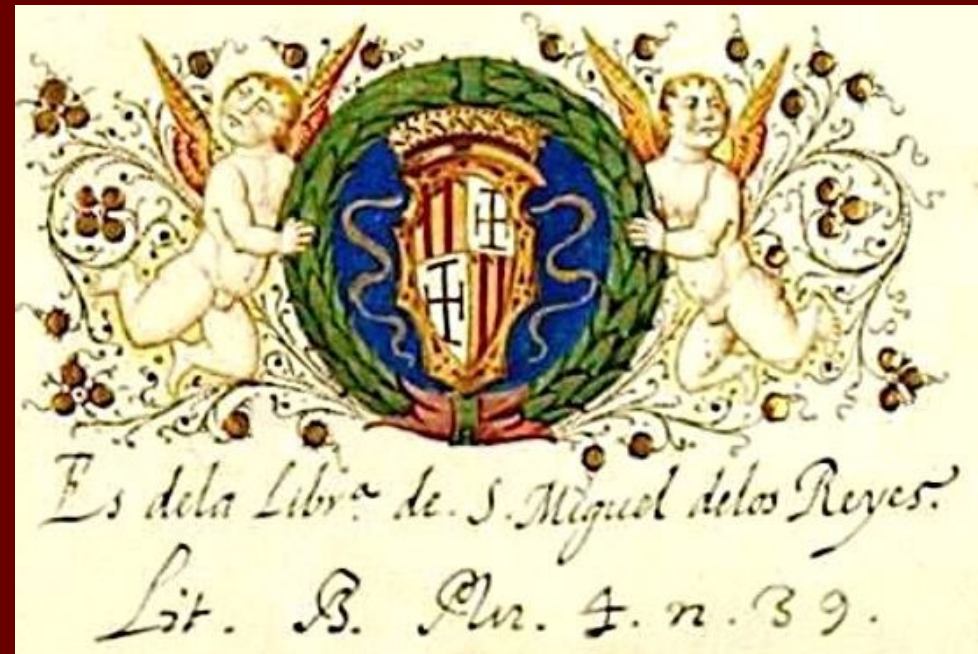 Es dela Libr.ª de. S. Miguel delos Reyes.
Lit. B. Plu. 4. n. 39.